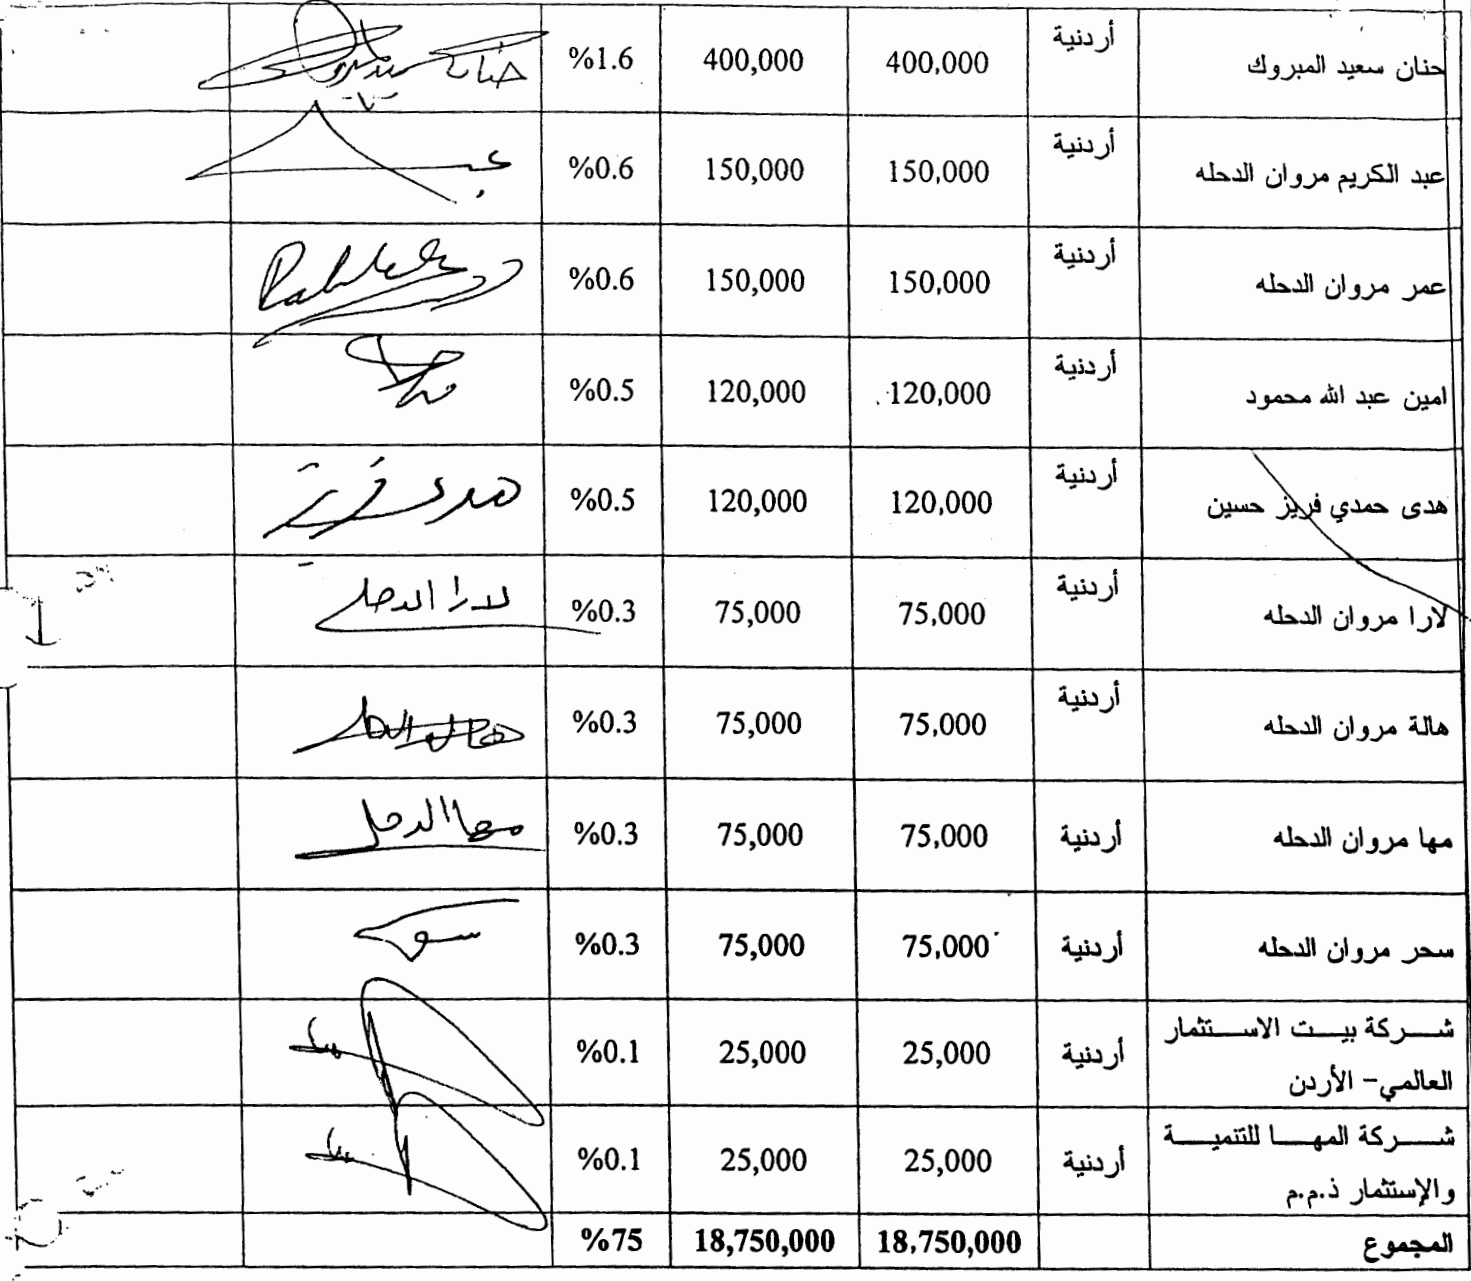 حنان سعيد المبروك أردنية 400,000 400,000 %1.6 حنان سعيد المبروك
عبد الكريم مروان الدحله أردنية 150,000 150,000 %0.6
عمر مروان الدحله أردنية 150,000 150,000 %0.6
امين عبد الله محمود أردنية 120,000 120,000 %0.5
هدى حمدي فريز حسين أردنية 120,000 120,000 %0.5 هدى فريز
لارا مروان الدحله أردنية 75,000 75,000 %0.3 لارا الدحله
هالة مروان الدحله أردنية 75,000 75,000 %0.3 هالة الدحله
مها مروان الدحله أردنية 75,000 75,000 %0.3 مها الدحله
سحر مروان الدحله أردنية 75,000 75,000 %0.3
شركة بيت الاستثمار
العالمي– الأردن أردنية 25,000 25,000 %0.1
شركة المها للتنمية
والإستثمار ذ.م.م أردنية 25,000 25,000 %0.1
المجموع 18,750,000 18,750,000 %75